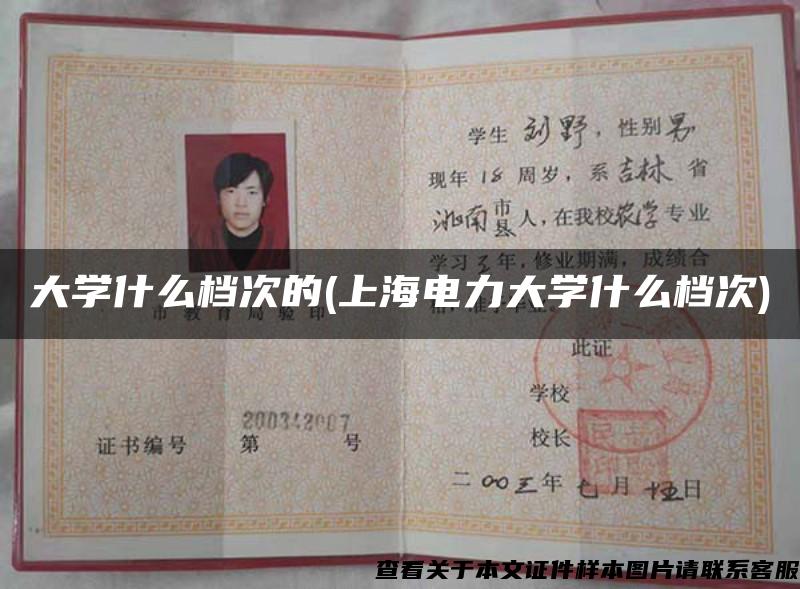 学生刘野，性别男
现年18周岁，系吉林省
洮南市县人，在我校农学专业
学习三年，修业期满，成绩合
大学什么档次的(上海电力大学什么档次)
市教育局验印
此证
学校
校长
200342007
证书编号 第 号
二〇〇三年七月十五日
查看关于本文证件样本图片请联系客服